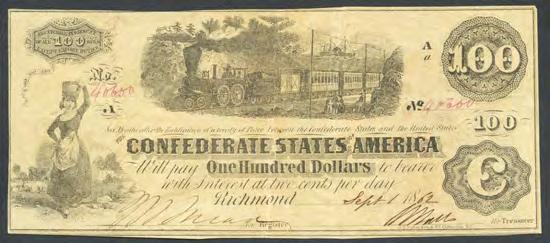 RECEIVABLE IN PAYMENT
OF ALL 100 DUES
EXCEPT EXPORT DUTIES
No.
A
A
a
100
No
100
Six Months after the Ratification of a treaty of Peace between the Confederate States and the United States
THE CONFEDERATE STATES OF AMERICA
Will pay One Hundred Dollars to bearer
with Interest at two cents per day
Richmond Sept 1862
for Register
for Treasurer
C